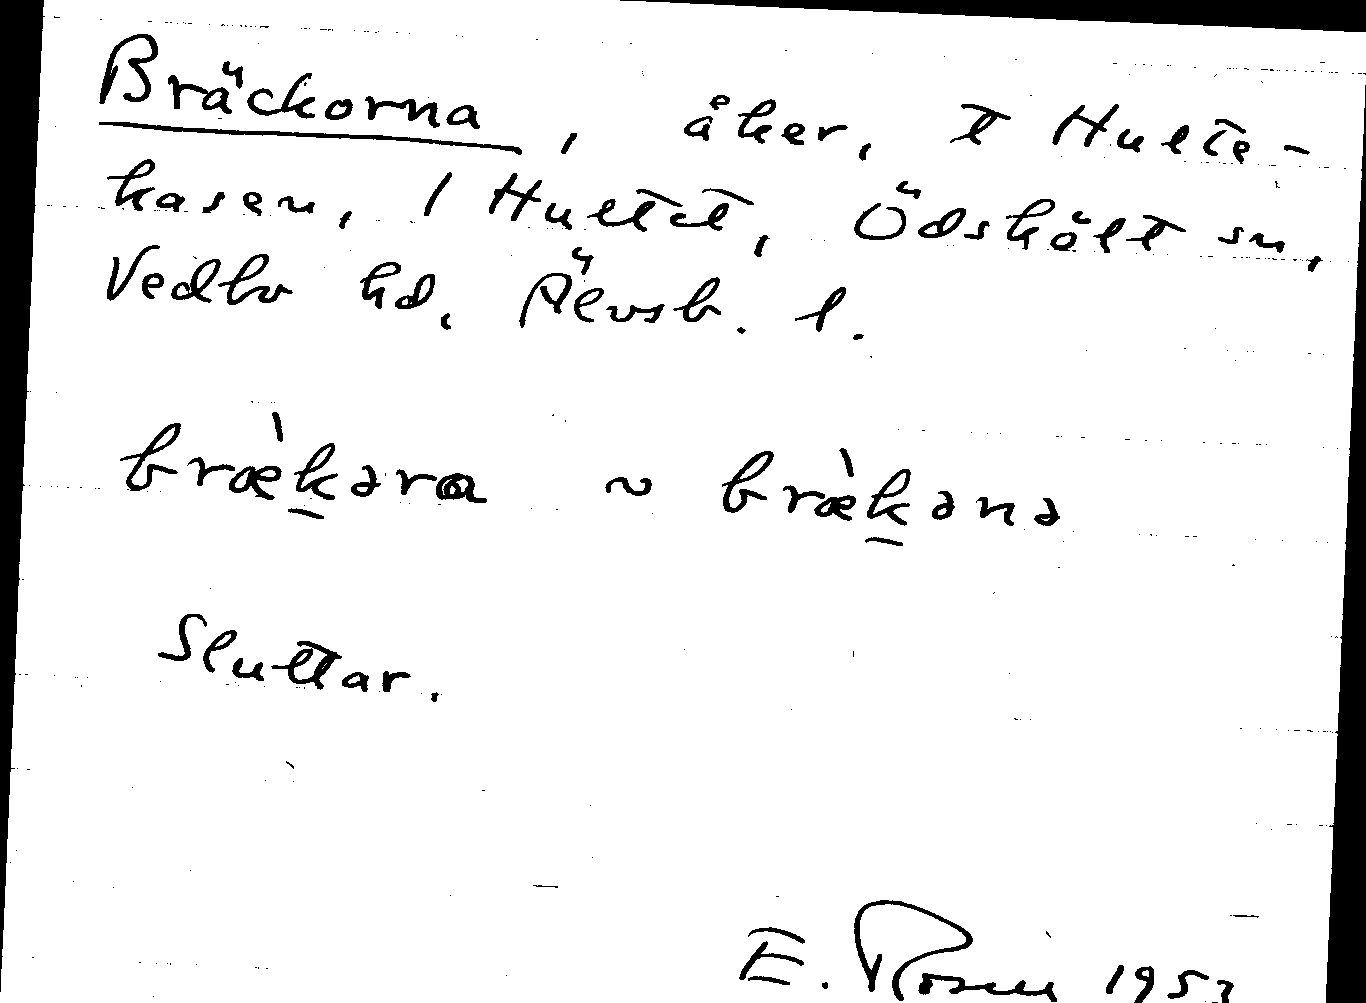 Bräckorna, åker, t Hulte-
kasen, 1 Hultet, Ödskölt sn,
Vedbo hd, Älvsb. l.
bræ̀k̲əra ~ bræ̀k̲ənə
Sluttar.
E. Rosell